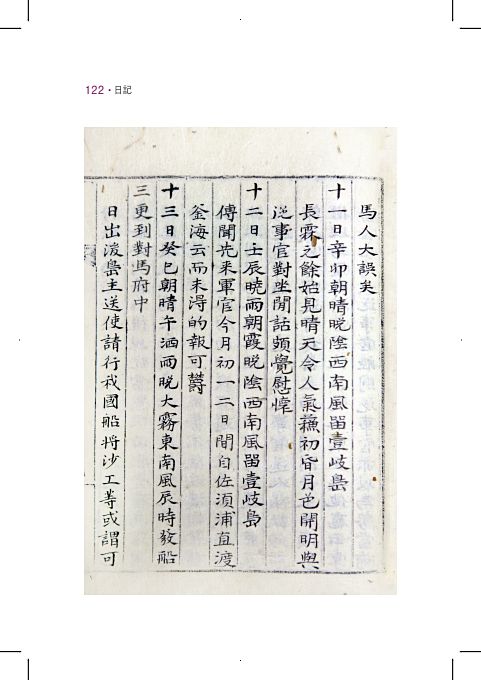 122 · 日記
馬人大誤矣
十一日辛卯朝晴晚陰西南風畄壹岐島
長霖之餘始見晴天令人氣蘓初昏月色開明與
從事官對坐閒話頗覺慰懷
十二日壬辰曉雨朝霞晚陰西南風畄壹岐島
傳聞先来軍官今月初一二日間自佐須浦直渡
釜海云而未淂的報可欝
十三日癸巳朝晴午洒雨晚大霧東南風辰時發船
三更到對馬府中
日出後島主送使請行我國船將沙工等或謂可